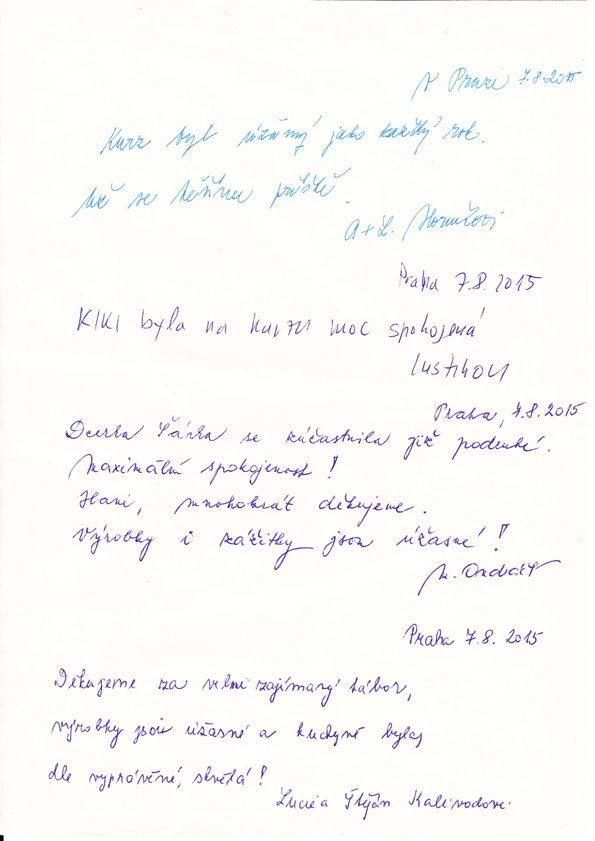 V Praze 7.8.2015
Kurz byl úžasný jako každý rok.
Už se těšíme příště.
A+L.
Praha 7.8.2015
KIKI byla na kurzu moc spokojená
Praha, 7.8.2015
Dcerka Šárka se zúčastnila již podruhé.
Maximální spokojenost!
Hani, mnohokrát děkujeme.
Výrobky i zážitky jsou úžasné!
Praha 7.8. 2015
Děkujeme za velmi zajímavý tábor,
výrobky jsou úžasné a kuchyně byla,
dle vyprávění, skvělá!
Lucie a Štěpán Kalivodovi